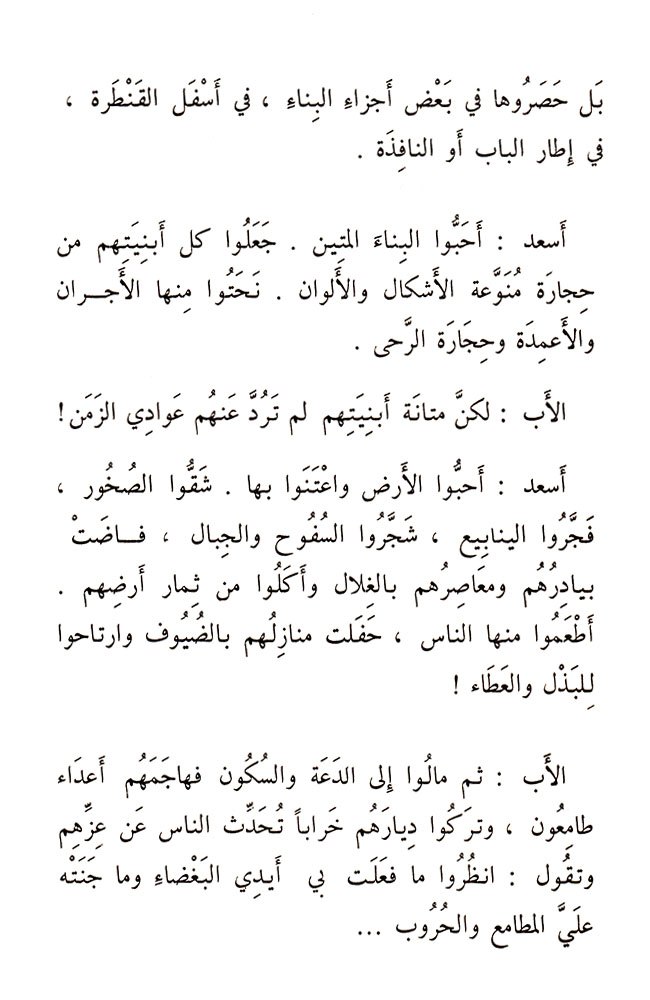 بَل حَصَرُوها في بَعْض أَجزاءِ البِناءِ ، في أَسْفَل القَنْطَرة ،
في إِطار الباب أَو النافِذَة .
أَسعد : أَحَبُّوا البِناءَ المتِين . جَعَلُوا كل أَبنِيَتِهم من
حِجارَة مُنَوَّعة الأَشكال والأَلوان . نَحَتُوا مِنها الأَجـران
والأَعمِدَة وحِجَارَة الرَّحى .
الأَب : لكنَّ متانَة أَبنِيَتِهم لم تَرُدَّ عَنهُم عَوادِي الزَمَن!
أَسعد : أَحبُّوا الأَرض واعْتَنَوا بـها . شَقُّوا الصُخُور ،
فَجَّرُوا الينابِيع ، شَجَّرُوا السُفُوح والجِبال ، فـاضَتْ
بيادِرُهُم ومعَاصِرُهُم بـالغِلال وأَكَلُوا من ثِمار أَرضِهم .
أَطْعَمُوا منها الناس ، حَفَلت منازِلُـهم بـالضُيُوف وارتاحوا
لِلبَذْل والعَطَاء !
الأَب : ثم مالُوا إِلى الدَعَة والسُكُون فهاجَمَهُم أَعدَاء
طامِعُون ، وتـرَكُوا دِيارَهُم خَراباً تُحَدِّث الناس عَن عِزِّهِم
وتقُول : انظُرُوا ما فعَلَت بي أَيدِي البَغْضاءِ وما جَنَتْه
علَيَّ المطامع والحُرُوب ...